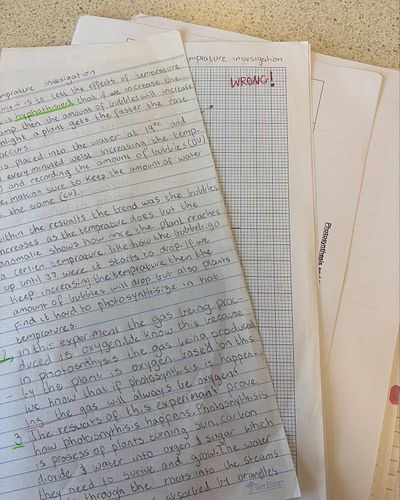 temprature invesigation
ment is to test the effects of temprature
hypothisised that if we increase the
amp then the amount of bubbles will increase
nlight a plant gets the faster the rate
occurs.
is placed into the water at 19°c and
every minuted welst increasing the temp-
and recording the amount of bubbles (DV)
making sure to keep the amount of water
the same (CV).
within the results the trend was the bubbles
increases as the temprature does but the
anomalie shows how once the plant reaches
a certien temprature, like how the bubbels go
up until 37 were it starts to drop. If we
keep increasing the temprature then the
amount of bubbles will drop but also plants
find it hard to photosynthisise in hot
tempratures.
In this experiment the gas being proc-
duced is oxygen. We know this becouse
in photosinthysis the gas being produced
by the plant is oxygen. based on this
we know that if photosynthisis is happen-
ing the gas will always be oxygen.
3 The resuats of this experimant prove
how photosynthisis happens. Photosynthisis
is prosess of plants turning sun, carbon
dioxide & water into oxgen & sugar which
they need to surive and grow. The water
through the roots into the steams
absorbed by
temprature invesigation
WRONG!
Photosynthesis